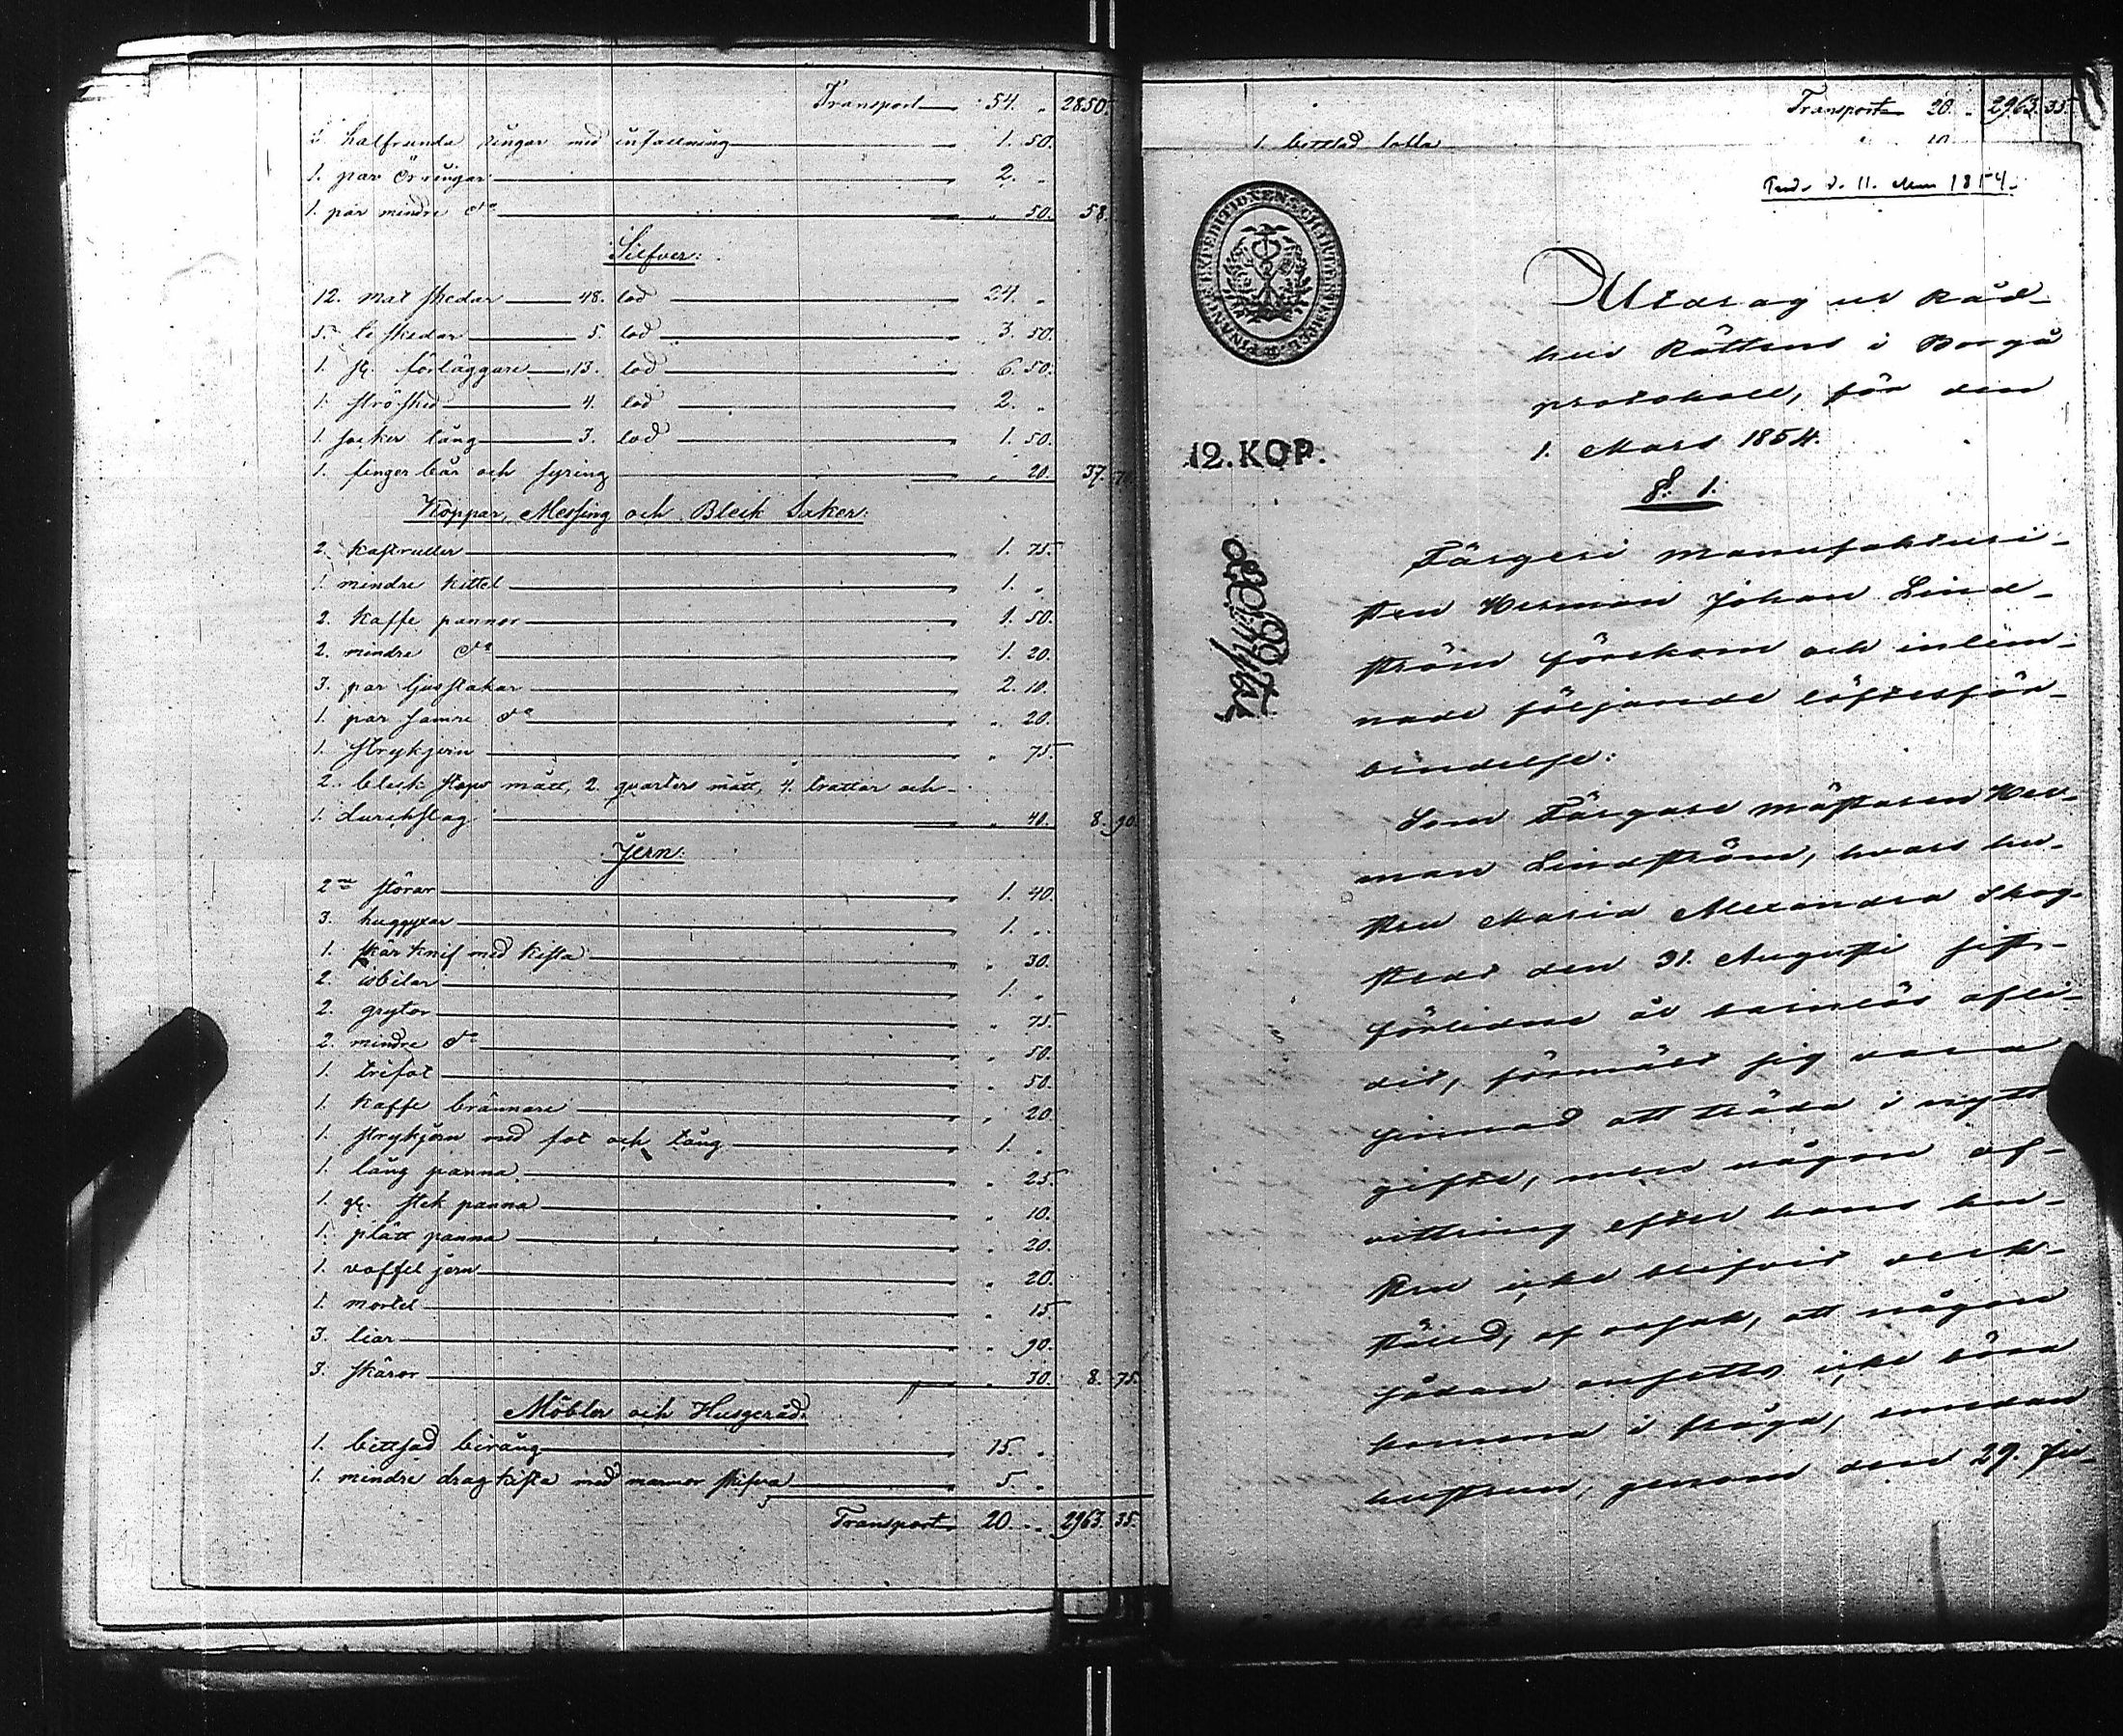 Transport 54. " 2850.
3 halfrunda ringar med infattning 1. 50.
1. par örringar 2. "
1. par mindre do " 50. 58.
Silfver:
12. mat skedar 48. lod 24. "
5. te skedar 5. lod 3. 50.
1. st. förläggare 13. lod 6. 50.
1. strösked 4. lod 2. "
1. socker tång 3. lod 1. 50.
1. fingerbår och syring " 20. 37. 70.
Koppar, Messing och Bleck Saker:
2. kastruller 1. 75
1. mindre kittel 1. "
2. kaffe pannor 1. 50.
2. mindre do 1. 20.
3. par ljusstakar 2. 10.
1. par samre do " 20.
1. strykjern " 75
2. bleck stops mått, 2. quarters mått, 4. trattar och
1. durchslag " 40. 8. 90.
Jern:
2ne störar 1. 40.
3. huggyxar 1. "
1. skärknif med kista " 30.
2. isbilar 1. "
2. grytor " 75
2. mindre do " 50.
1. trefot " 50.
1. kaffe brännare " 20.
1. strykjern med fot och tång 1. "
1. lång panna " 25
1. gl. stek panna " 10.
1. plätt panna " 20.
1. voffel jern " 20.
1. mortel " 15
3. liar " 90.
3. skäror " 30. 8. 75.
Möbler och Husgeråd:
1. bittsad birång 15. "
1. mindre dragkista med marmor skifva 5. "
Transport 20. " 2963. 35.
Transport 20. " 2963. 35.
1. bittsad
10
d. 11. 1854.
12. KOP.
Utdrag ur Råd-
hus Rättens i Borgå
protokoll, för den
1. Mars 1854.
§. 1.
Färgeri manufakturi-
sten Herman Johan Lind-
ström förekom och inlem-
nade följande löftesför-
bindelse:
Som Färgare mästaren Her-
man Lindström, hvars hu-
stru Maria Alexandra Skog-
stedt den 31. Augusti sist-
förlidne år barnlös afli-
dit, förmält sig vara
sinnad att träda i nytt
gifte, men någon af-
vittring efter hans hu-
stru icke blifvit verk-
ställd, af orsak, att någon
sådan ansetts icke böra
komma i fråga, emedan
hustrun, genom den 29. Ju-